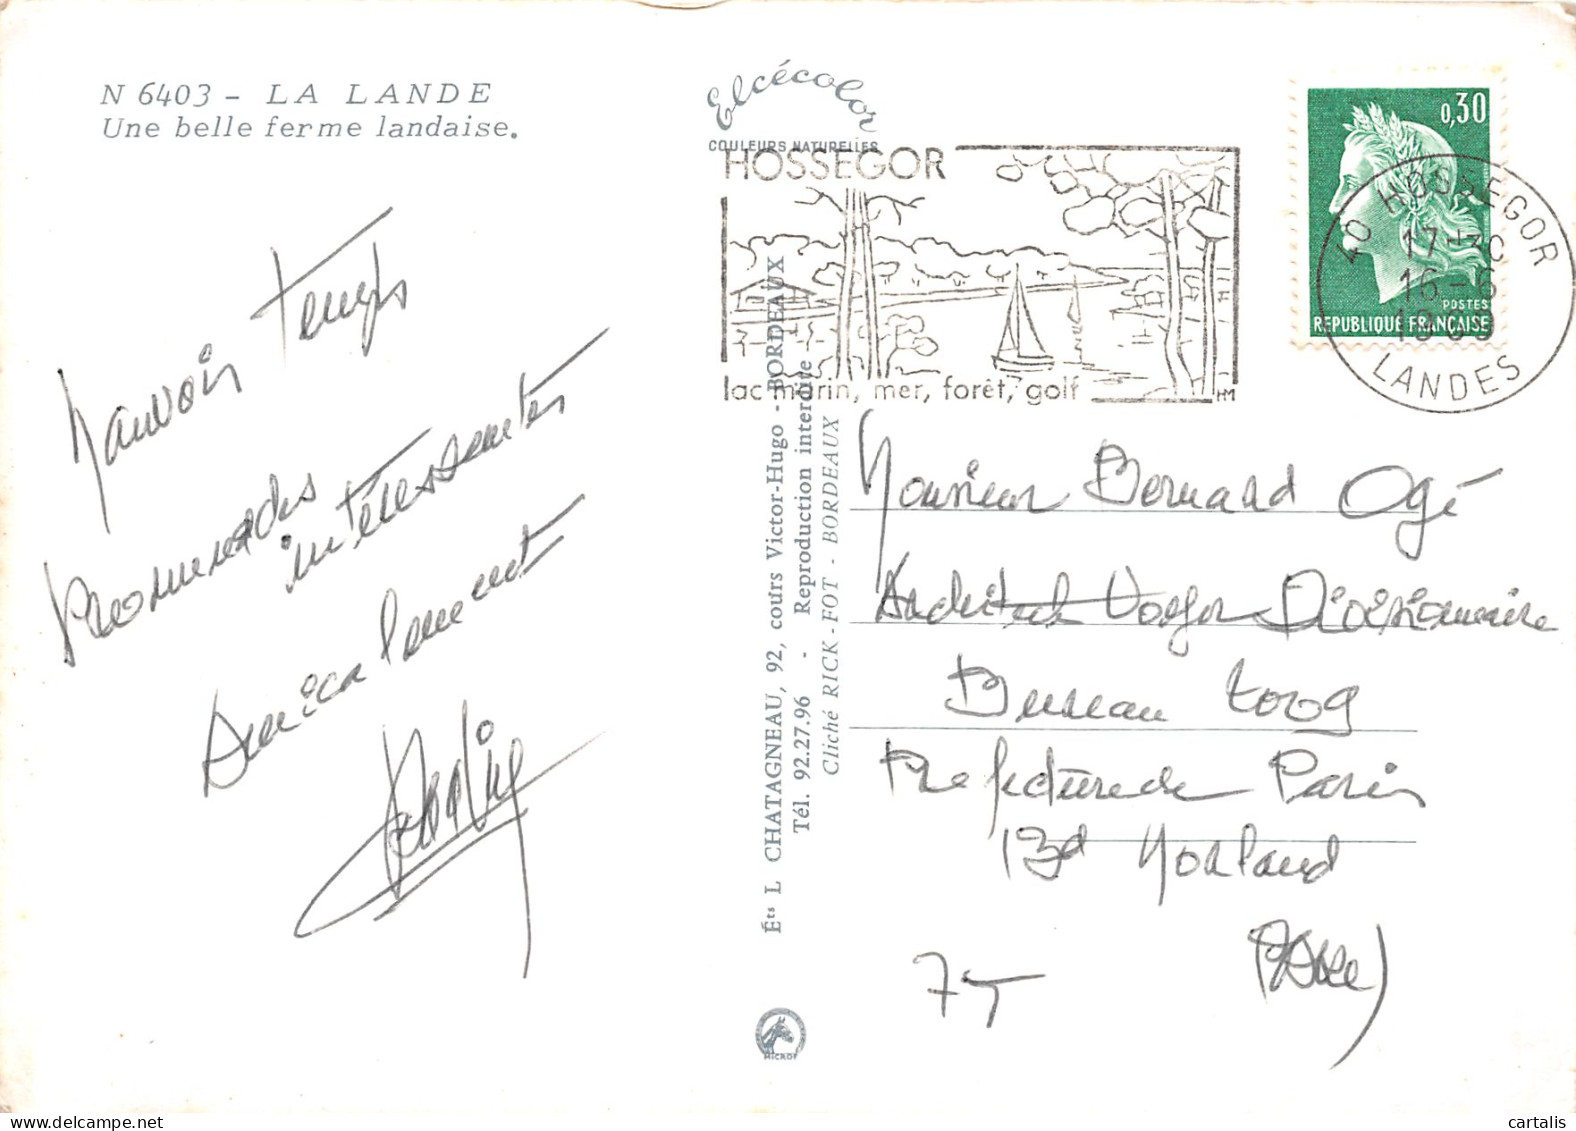 N 6403 - LA LANDE
Une belle ferme landaise.
Mauvais temps
Promenades
intéressantes
Amicalement
Elcécolor
COULEURS NATURELLES
HOSSEGOR
lac marin, mer, forêt, golf
HM
0,30
POSTES
REPUBLIQUE FRANÇAISE
40 HOSSEGOR
17H30
16-6
1969
LANDES
Éts L CHATAGNEAU, 92, cours Victor-Hugo - BORDEAUX
Tél. 92.27.96 - Reproduction interdite
Cliché RICK-FOT - BORDEAUX
Monsieur Bernard Ogé
Architecte Voyer Divisionnaire
Bureau
Préfecture de Paris
Bd Morland
75
MICROF
cartalis